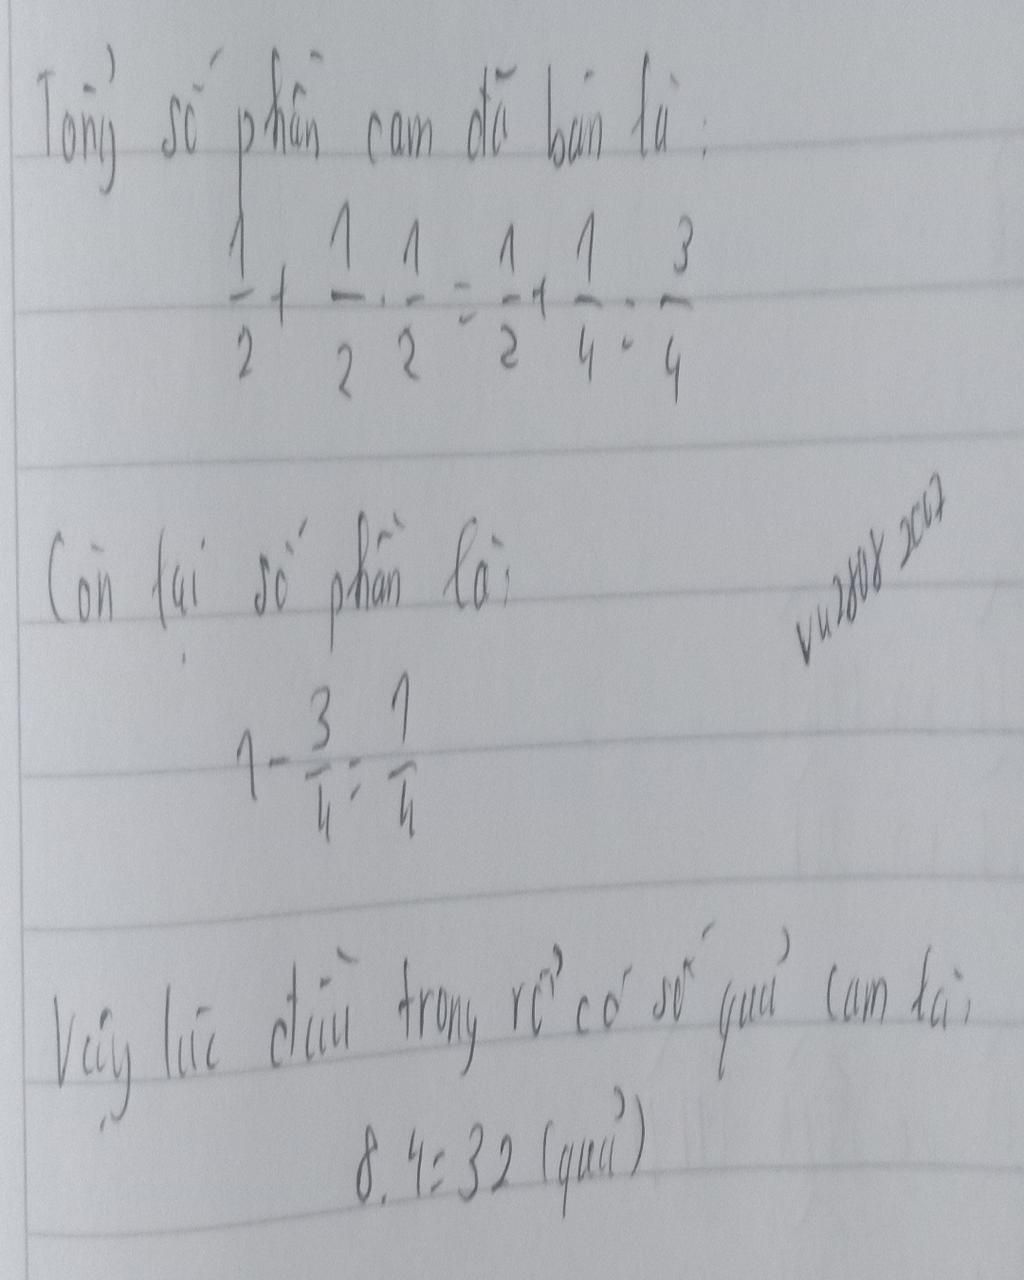 Tổng số phần cam đã bán là:
1/2 + 1/2 . 1/2 = 1/2 + 1/4 = 3/4
Còn lại số phần là:
vu28082007
1 - 3/4 = 1/4
Vậy lúc đầu trong rổ có số quả cam là:
8.4=32 (quả)